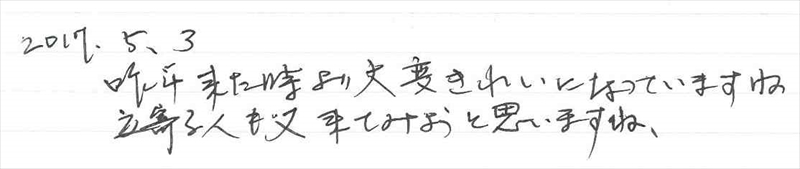 2017. 5. 3
昨年来た時より大変きれいになっていますね
立寄る人も又来てみようと思いますね、